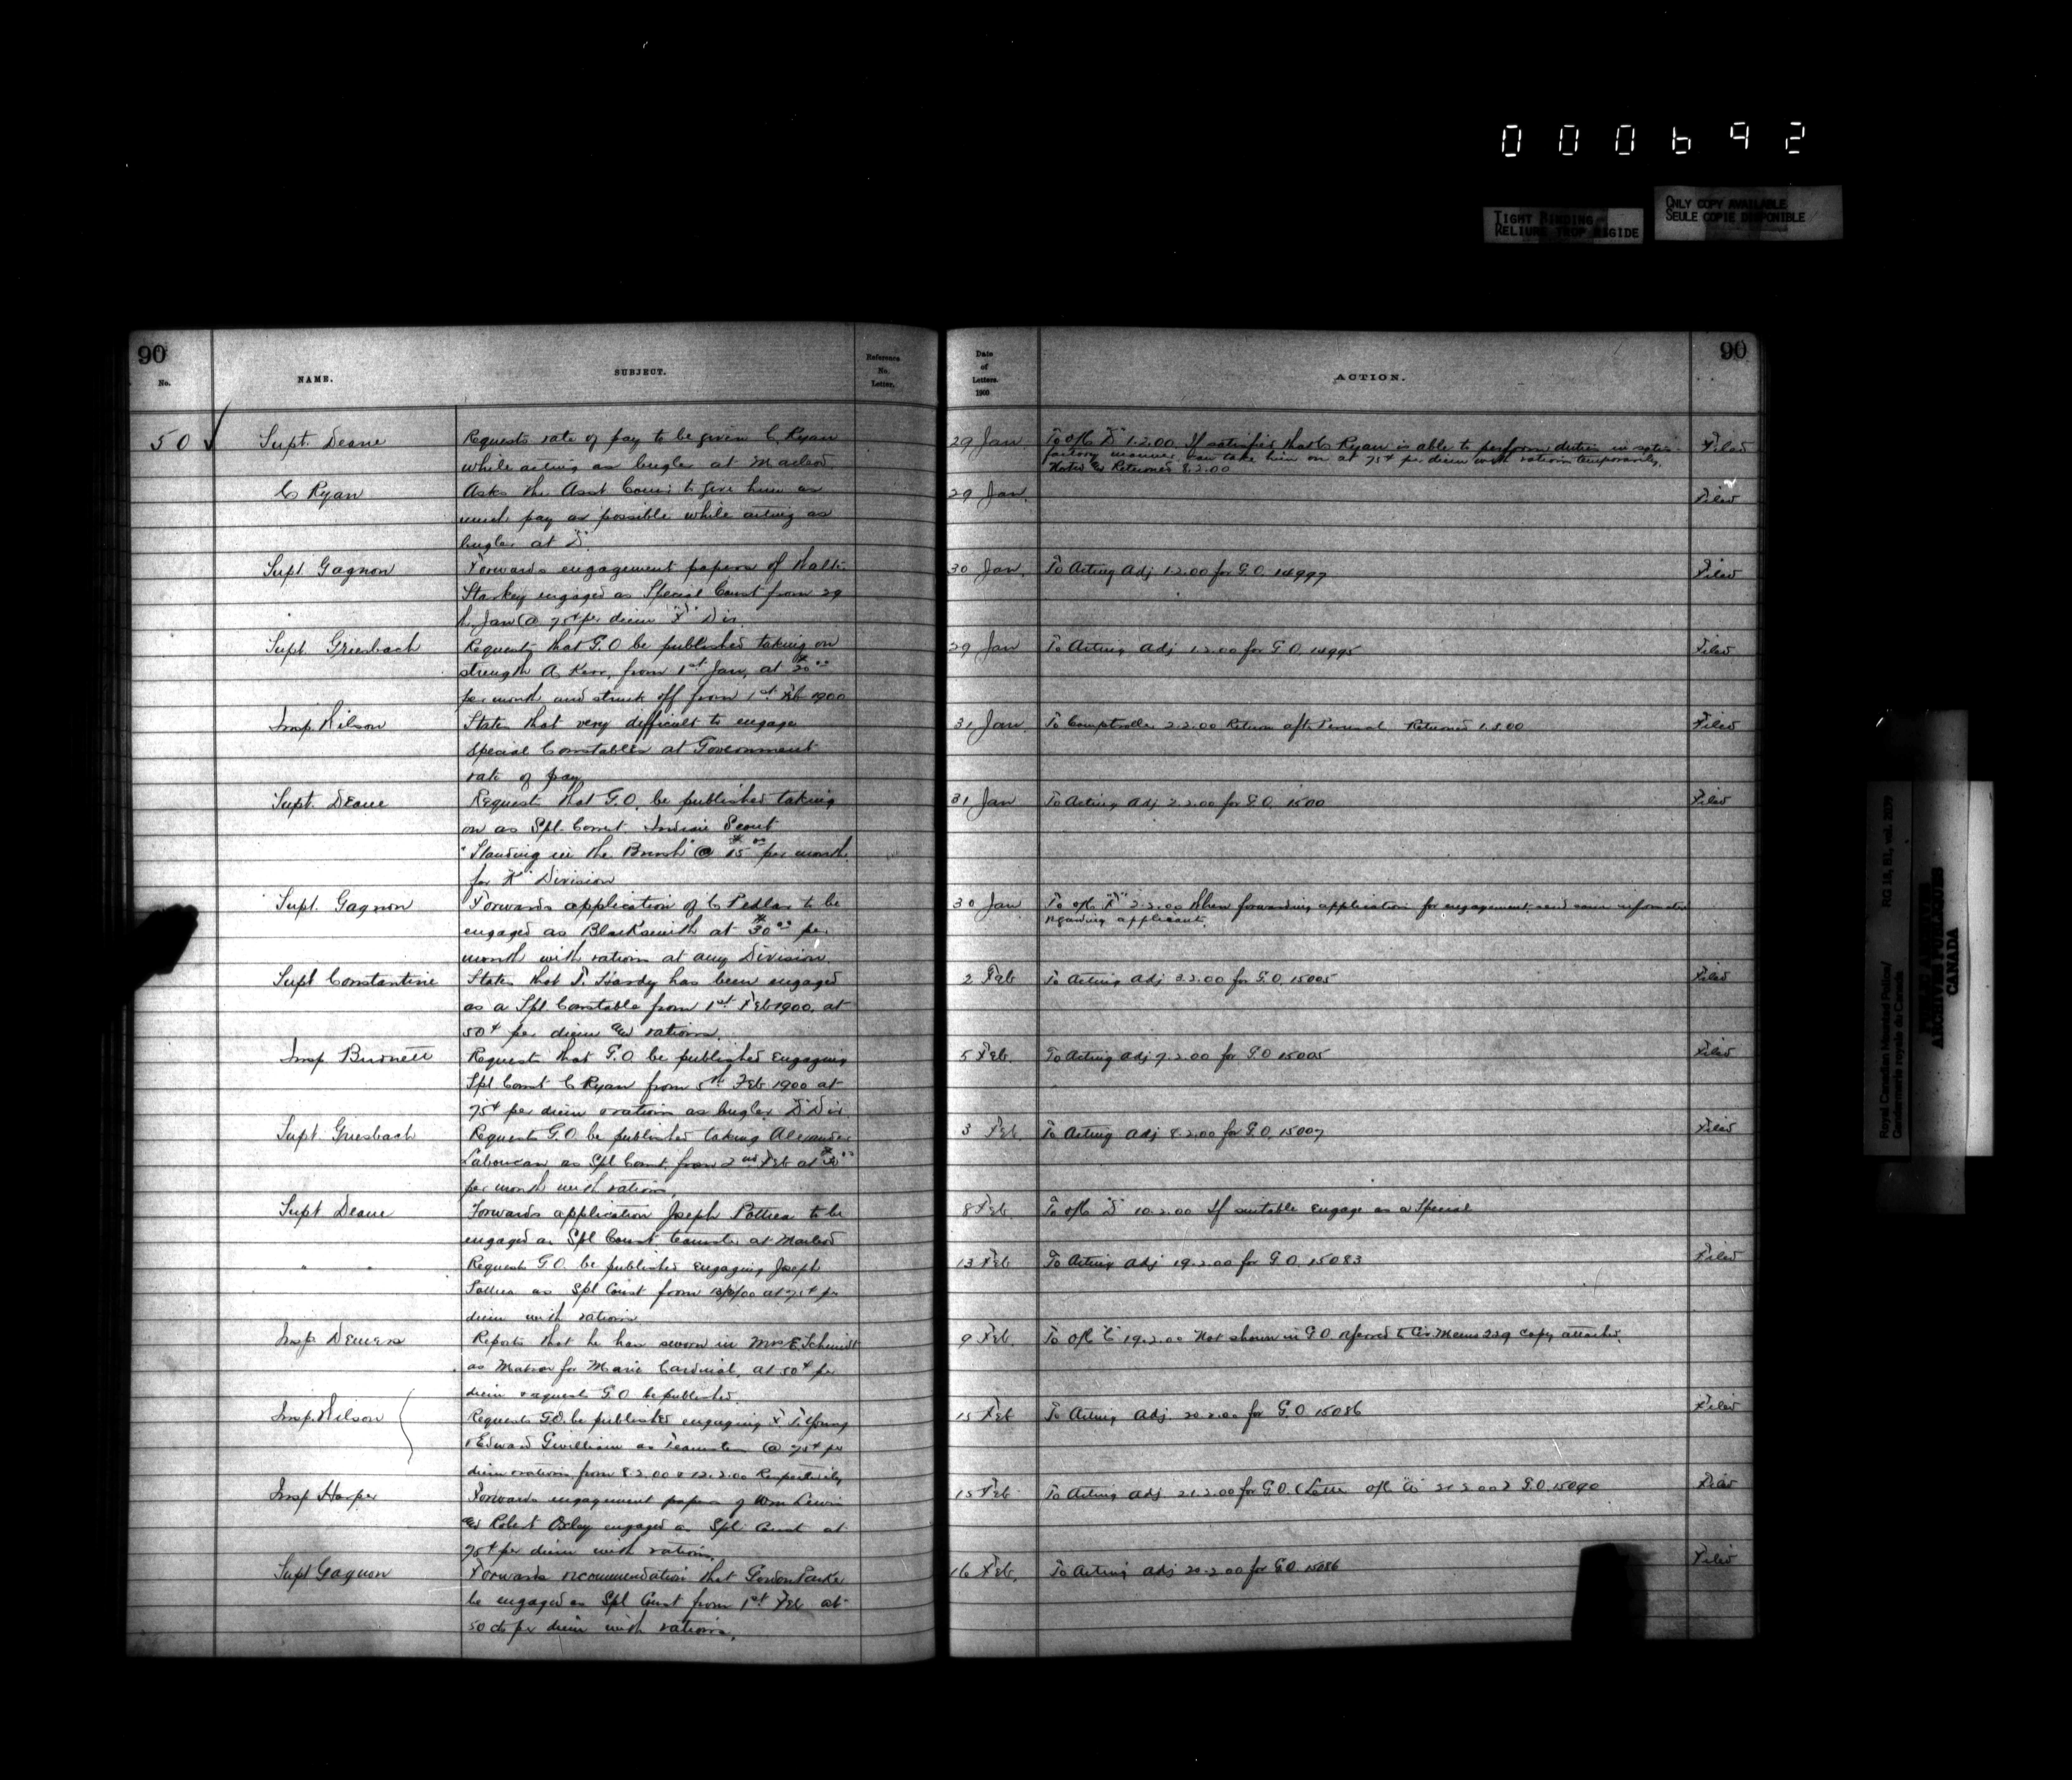 000692
TIGHT BINDING
RELIURE TROP RIGIDE
ONLY COPY AVAILABLE
SEULE COPIE DISPONIBLE
90
No.
NAME.
SUBJECT.
Reference
No.
Letter.
Date
of
Letters.
1900
ACTION.
90
50 ✓ Supt. Deane
Requests rate of pay to be given C. Ryan
while acting as bugler at Macleod
29 Jan
To o/c "D" 1.2.00 If satisfied that C Ryan is able to perform duties in satis-
factory manner, can take him on at 75¢ per diem with rations temporarily,
Noted and Returned 8.2.00
Filed
C Ryan
Asks the Asst Comr to give him as
much pay as possible while acting as
bugler at "D".
29 Jan.
Filed
Supt Gagnon
Forwards engagement papers of
Starkey engaged as Special Const from 29
Jan @ 75¢ per diem "F" Div.
30 Jan.
To Acting Adj 1.2.00 for G.O. 14997
Filed
Supt Griesbach
Requests that G.O be published taking on
strength A. Kerr, from 1st Jan, at $20.00
per month and struck off from 1st Feb 1900
29 Jan
To Acting Adj 1.2.00 for G.O. 14995
Filed
Insp Wilson
States that very difficult to engage
Special Constables at Government
rate of pay
31 Jan.
To Comptroller 2.2.00 Return after Perusal Returned 1.5.00
Filed
Supt. Deane
Request that G.O. be published taking
on as Spl. Const. Indian Scout
"Standing in the Brush" @ $15.00 per month
for "K" Division
31 Jan
To Acting Adj 2.2.00 for G.O. 1500
Filed
Supt. Gagnon
Forwards application of C Pedlar to be
engaged as Blacksmith at $30.00 per
month with rations at any Division.
30 Jan
To o/c "F" 2.2.00 When forwarding application for engagement, send some information
regarding applicants
Supt Constantine
States that T. Hardy has been engaged
as a Spl Constable from 1st Feb 1900, at
50¢ per diem and rations.
2 Feb
To Acting Adj 3.2.00 for G.O. 15005
Filed
Insp Burnett
Request that G.O be published engaging
Spl Const C Ryan from 5th Feb 1900 at
75¢ per diem & rations as bugler "D" Div
5 Feb.
To Acting Adj 7.2.00 for G.O 15005
Filed
Supt Griesbach
Requests G.O be published taking Alexander
Laboucan as Spl Const from 2nd Feb at $30.00
per month with rations.
3 Feb
To Acting Adj 8.2.00 for G.O. 15007
Filed
Supt Deane
Forwards application Joseph Pottrea to be
engaged as Spl Const Teamster at Macleod
8 Feb
To o/c "D" 10.2.00 If suitable engage as a Special
" "
Requests G.O be published engaging Joseph
as Spl Const from 13/2/00 at 75¢ per
diem with rations
13 Feb
To Acting Adj 19.2.00 for G.O. 15083
Filed
Insp Demers
Reports that he has sworn in Mrs E. Schmidt
as Matron for Marie Cardinal, at 50¢ per
diem & requests G.O be published.
9 Feb
To o/c "C" 19.2.00 Not shown in G.O referred to Cir Memo 229 copy attached.
Insp. Wilson
Requests G.O. be published engaging F. T. Young
& Edward Gwilliam as Teamsters @ 75¢ per
diem & rations from 8.2.00 & 12.2.00 Respectively
15 Feb
To Acting Adj 20.2.00 for G.O 15086
Filed
Insp Harper
Forwards engagement papers of Wm Lewis
and Robert Oxley engaged as Spl Const at
75¢ per diem with rations.
15 Feb
To Acting Adj 21.2.00 for G.O. (Letter o/c "C" 21.2.00) G.O. 15090
Filed
Supt Gagnon
Forwards recommendation that Gordon Parke
be engaged as Spl Const from 1st Feb at
50 cts per diem with rations.
16 Feb.
To Acting Adj 20.2.00 for G.O. 15086
Filed
Royal Canadian Mounted Police/
Gendarmerie royale du Canada
RG 18, B1, vol. 2039
PUBLIC ARCHIVES
ARCHIVES PUBLIQUES
CANADA